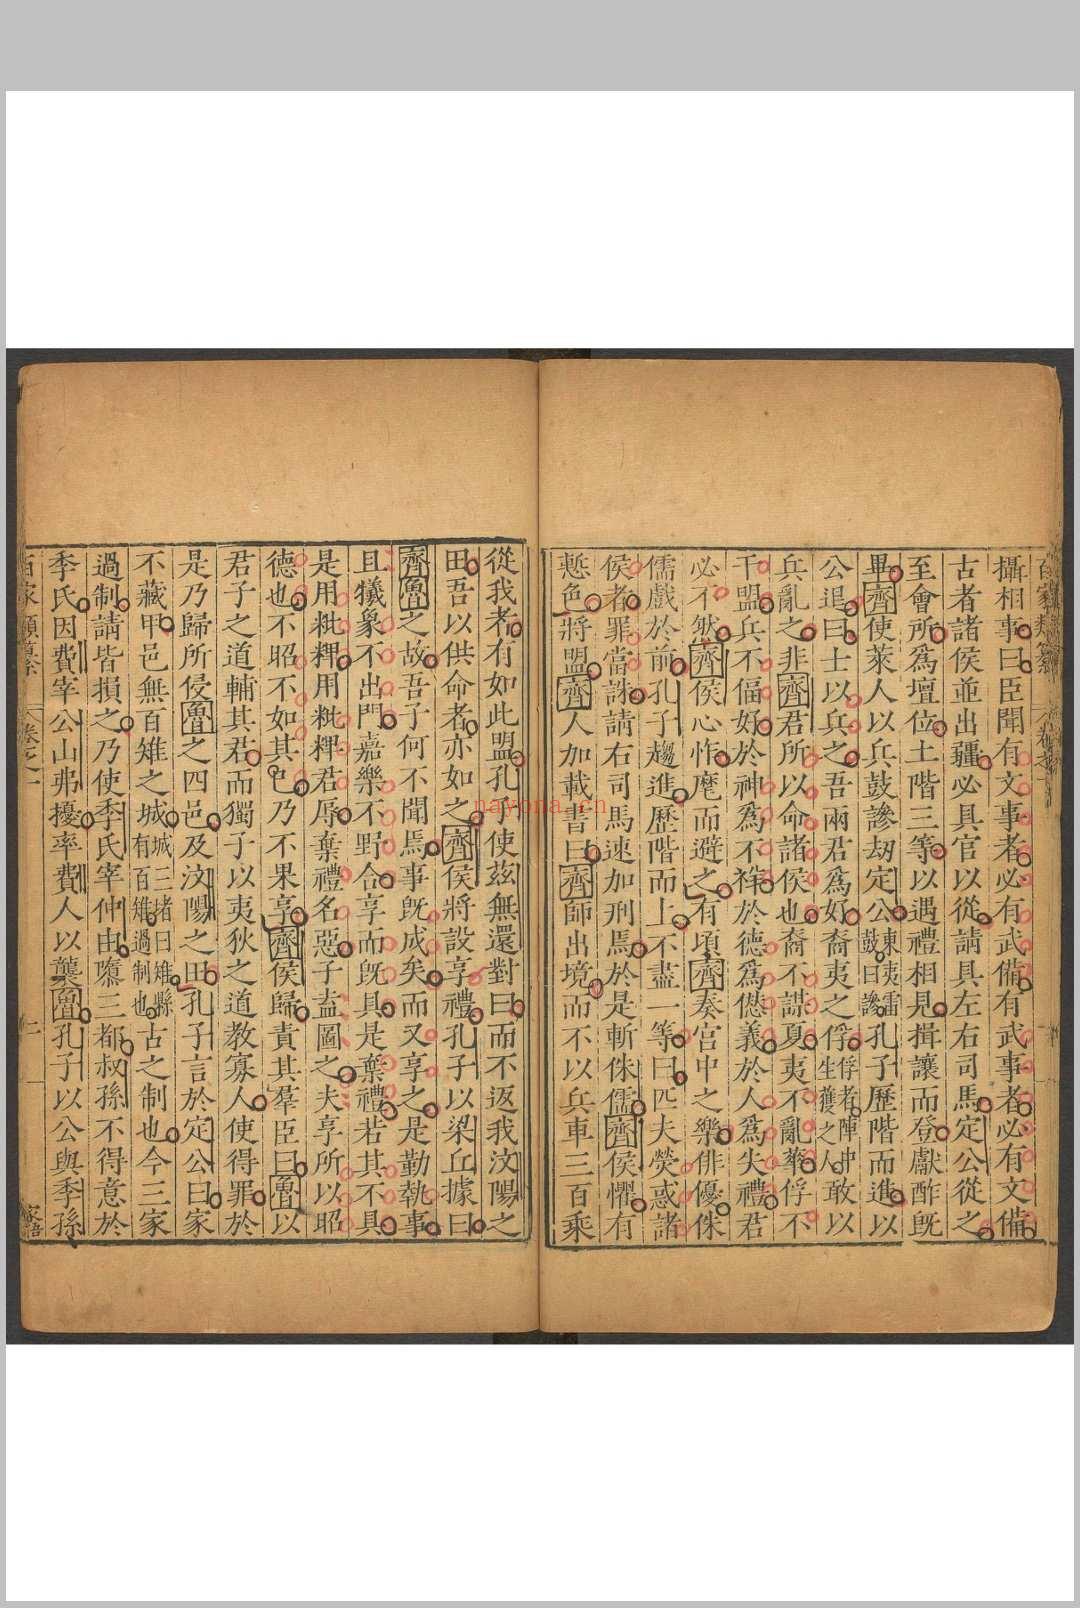 攝相事曰臣聞有文事者必有武備有武事者必有文備
古者諸侯並出疆必具官以從請具左右司馬定公從之
至會所爲壇位土階三等以遇禮相見揖讓而登獻酢旣
畢齊使萊人以兵鼓譟劫定公東夷雷鼓曰譟孔子歷階而進以
公退曰士以兵之吾兩君爲好裔夷之俘俘者陣中生獲之人敢以
兵亂之非齊君所以命諸侯也裔不謀夏夷不亂華俘不
干盟兵不偪好於神爲不祥於德爲愆義於人爲失禮君
必不然齊侯心怍麾而避之有頃齊奏宮中之樂俳優侏
儒戲於前孔子趨進歷階而上不盡一等曰匹夫熒惑諸
侯者罪當誅請右司馬速加刑焉於是斬侏儒齊侯懼有
慙色將盟齊人加載書曰齊師出境而不以兵車三百乘
從我者有如此盟孔子使茲無還對曰而不返我汶陽之
田吾以供命者亦如之齊侯將設享禮孔子以梁丘據曰
齊魯之故吾子何不聞焉事旣成矣而又享之是勤執事
且犧象不出門嘉樂不野合享而旣具是棄禮若其不具
是用粃粺用粃粺君辱棄禮名惡子盍圖之夫享所以昭
德也不昭不如其已乃不果享齊侯歸責其羣臣曰魯以
君子之道輔其君而獨子以夷狄之道教寡人使得罪於
是乃歸所侵魯之四邑及汶陽之田孔子言於定公曰家
不藏甲邑無百雉之城城三堵曰雉縣有百雉過制也古之制也今三家
過制請皆損之乃使季氏宰仲由隳三都叔孫不得意於
季氏因費宰公山弗擾率費人以襲魯孔子以公與季孫
百家類纂 卷之一 二 家語
nayona.cn